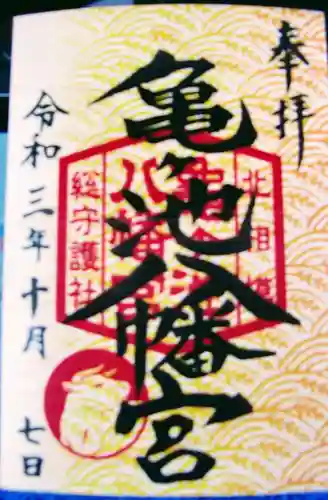 奉拝
亀ヶ池八幡宮
北相模
総守護社
令和三年十月七日